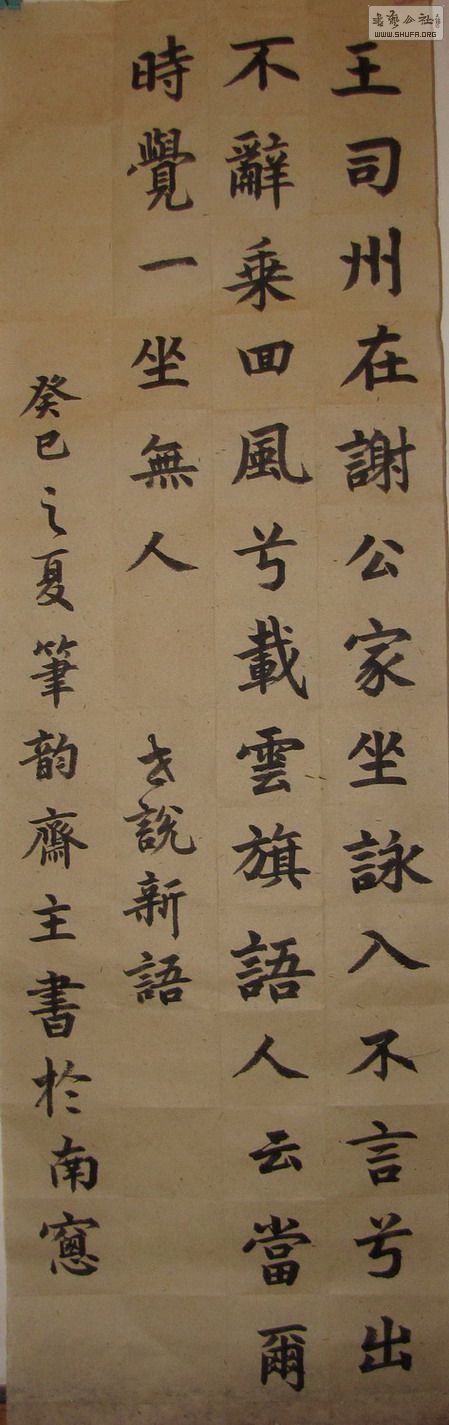 王司州在謝公家坐詠入不言兮出
不辭乗回風兮載雲旗語人云當爾
時覺一坐無人 世說新語
癸巳之夏筆韵齋主書於南窻
書法公社
WWW.SHUFA.ORG